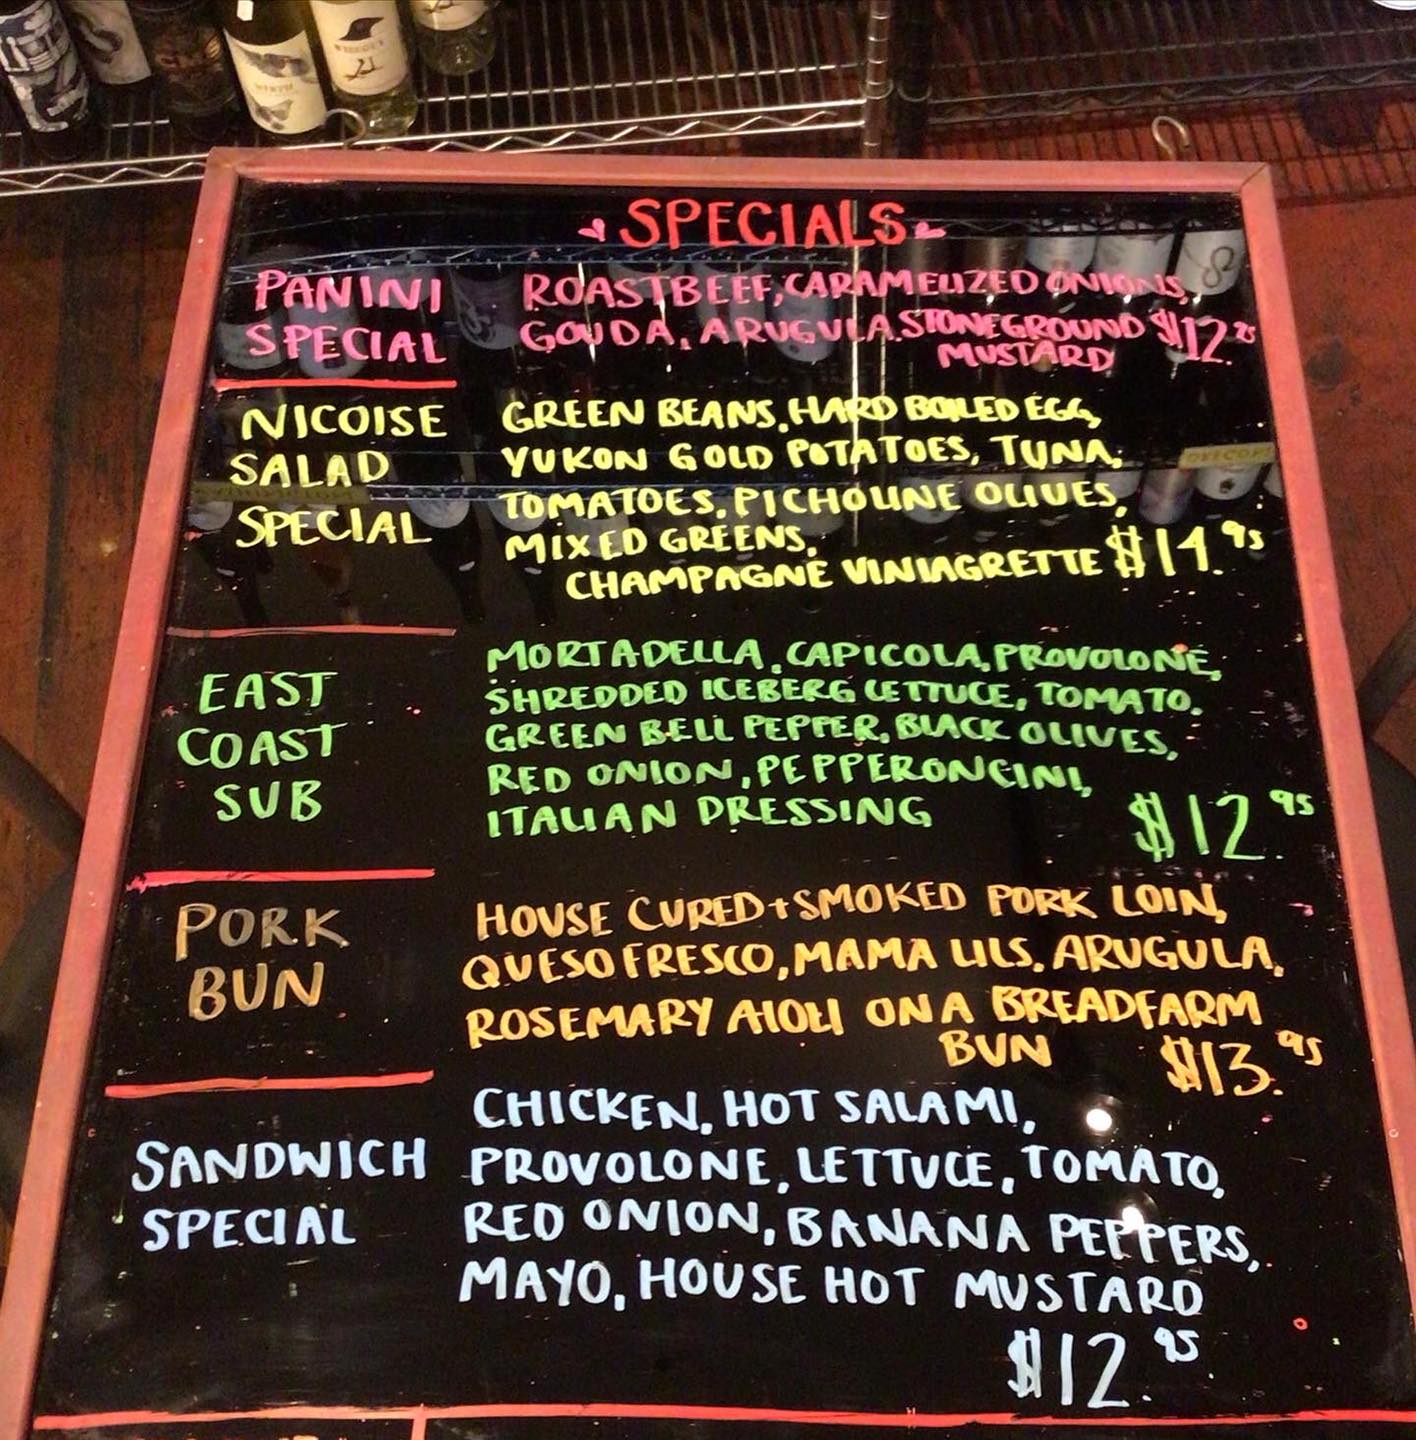 SPECIALS
PANINI SPECIAL
ROAST BEEF, CARAMELIZED ONIONS,
GOUDA, ARUGULA, STONEGROUND $12.95
MUSTARD
NICOISE
SALAD
SPECIAL
GREEN BEANS, HARD BOILED EGG,
YUKON GOLD POTATOES, TUNA,
TOMATOES, PICHOLINE OLIVES,
MIXED GREENS,
CHAMPAGNE VINIAGRETTE $14.95
EAST
COAST
SUB
MORTADELLA, CAPICOLA, PROVOLONE,
SHREDDED ICEBERG LETTUCE, TOMATO,
GREEN BELL PEPPER, BLACK OLIVES,
RED ONION, PEPPERONCINI,
ITALIAN DRESSING
$12.95
PORK
BUN
HOUSE CURED + SMOKED PORK LOIN,
QUESO FRESCO, MAMA LILS, ARUGULA,
ROSEMARY AIOLI ON A BREADFARM
BUN $13.95
SANDWICH
SPECIAL
CHICKEN, HOT SALAMI,
PROVOLONE, LETTUCE, TOMATO,
RED ONION, BANANA PEPPERS,
MAYO, HOUSE HOT MUSTARD
$12.95